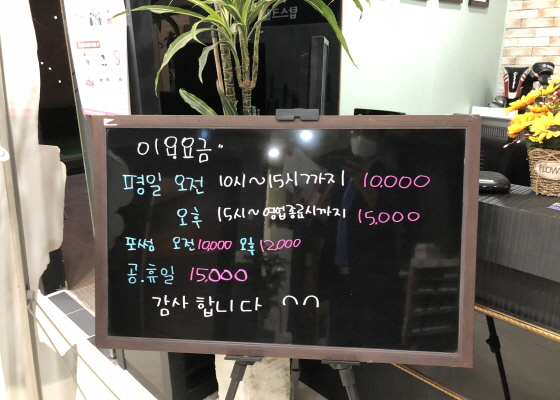 이용요금"
평일 오전 10시~15시까지 10,000
오후 15시~영업종료시까지 15,000
포썸 오전 10,000 오후 12,000
공.휴일 15,000
감사합니다 ^^
FLOW